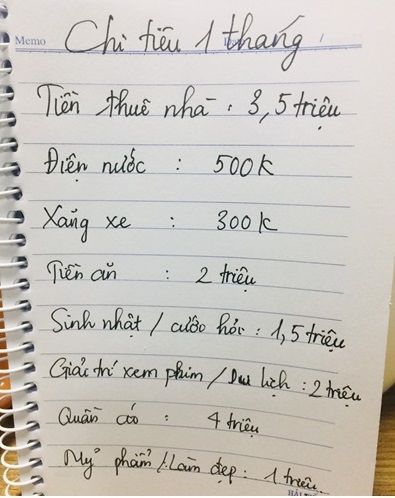 Memo
Chi tiêu 1 tháng
Tiền thuê nhà : 3,5 triệu
Điện nước : 500k
Xăng xe : 300k
Tiền ăn : 2 triệu
Sinh nhật / cưới hỏi : 1,5 triệu
Giải trí xem phim / Du lịch : 2 triệu
Quần áo : 4 triệu
Mỹ phẩm / Làm đẹp : 1 triệu